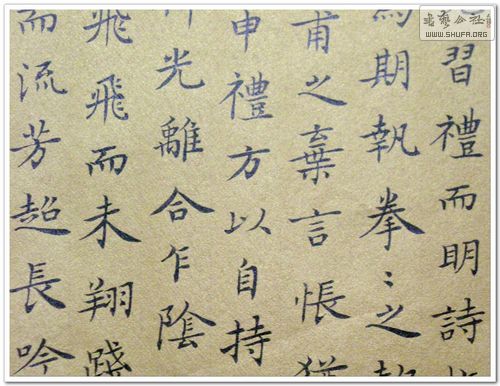 書藝公社
WWW.SHUFA.ORG
習禮而明詩
為期執拳〻之
甫之棄言悵猶
申禮方以自持
光離合乍陰
飛飛而未翔踐
而流芳超長吟